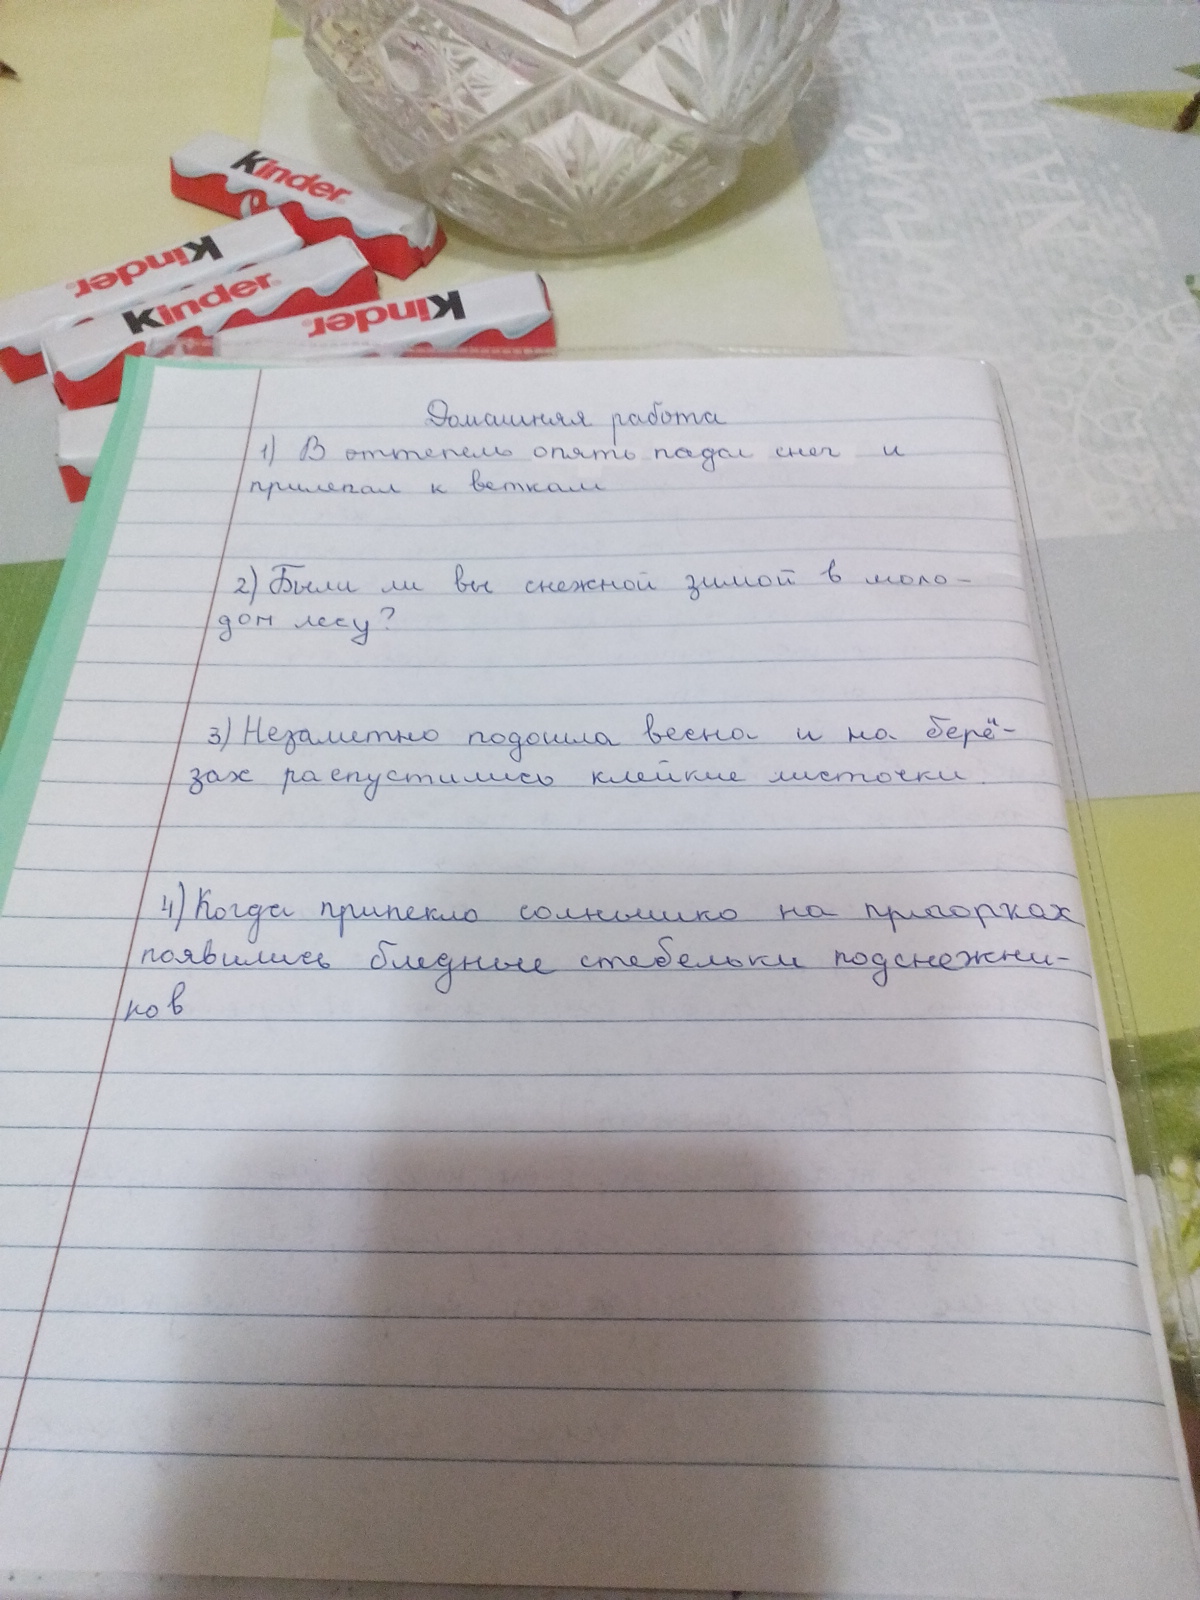 Kinder
Kinder
Kinder
Kinder
NATURE
nature
Домашняя работа
1) В оттепель опять падал снег и
прилепал к веткам
2) Были ли вы снежной зимой в моло-
дом лесу?
3) Незаметно подошла весна и на берё-
зах распустились клейкие листочки.
4) Когда припекло солнышко на пригорках
появились бледные стебельки подснежни-
ков